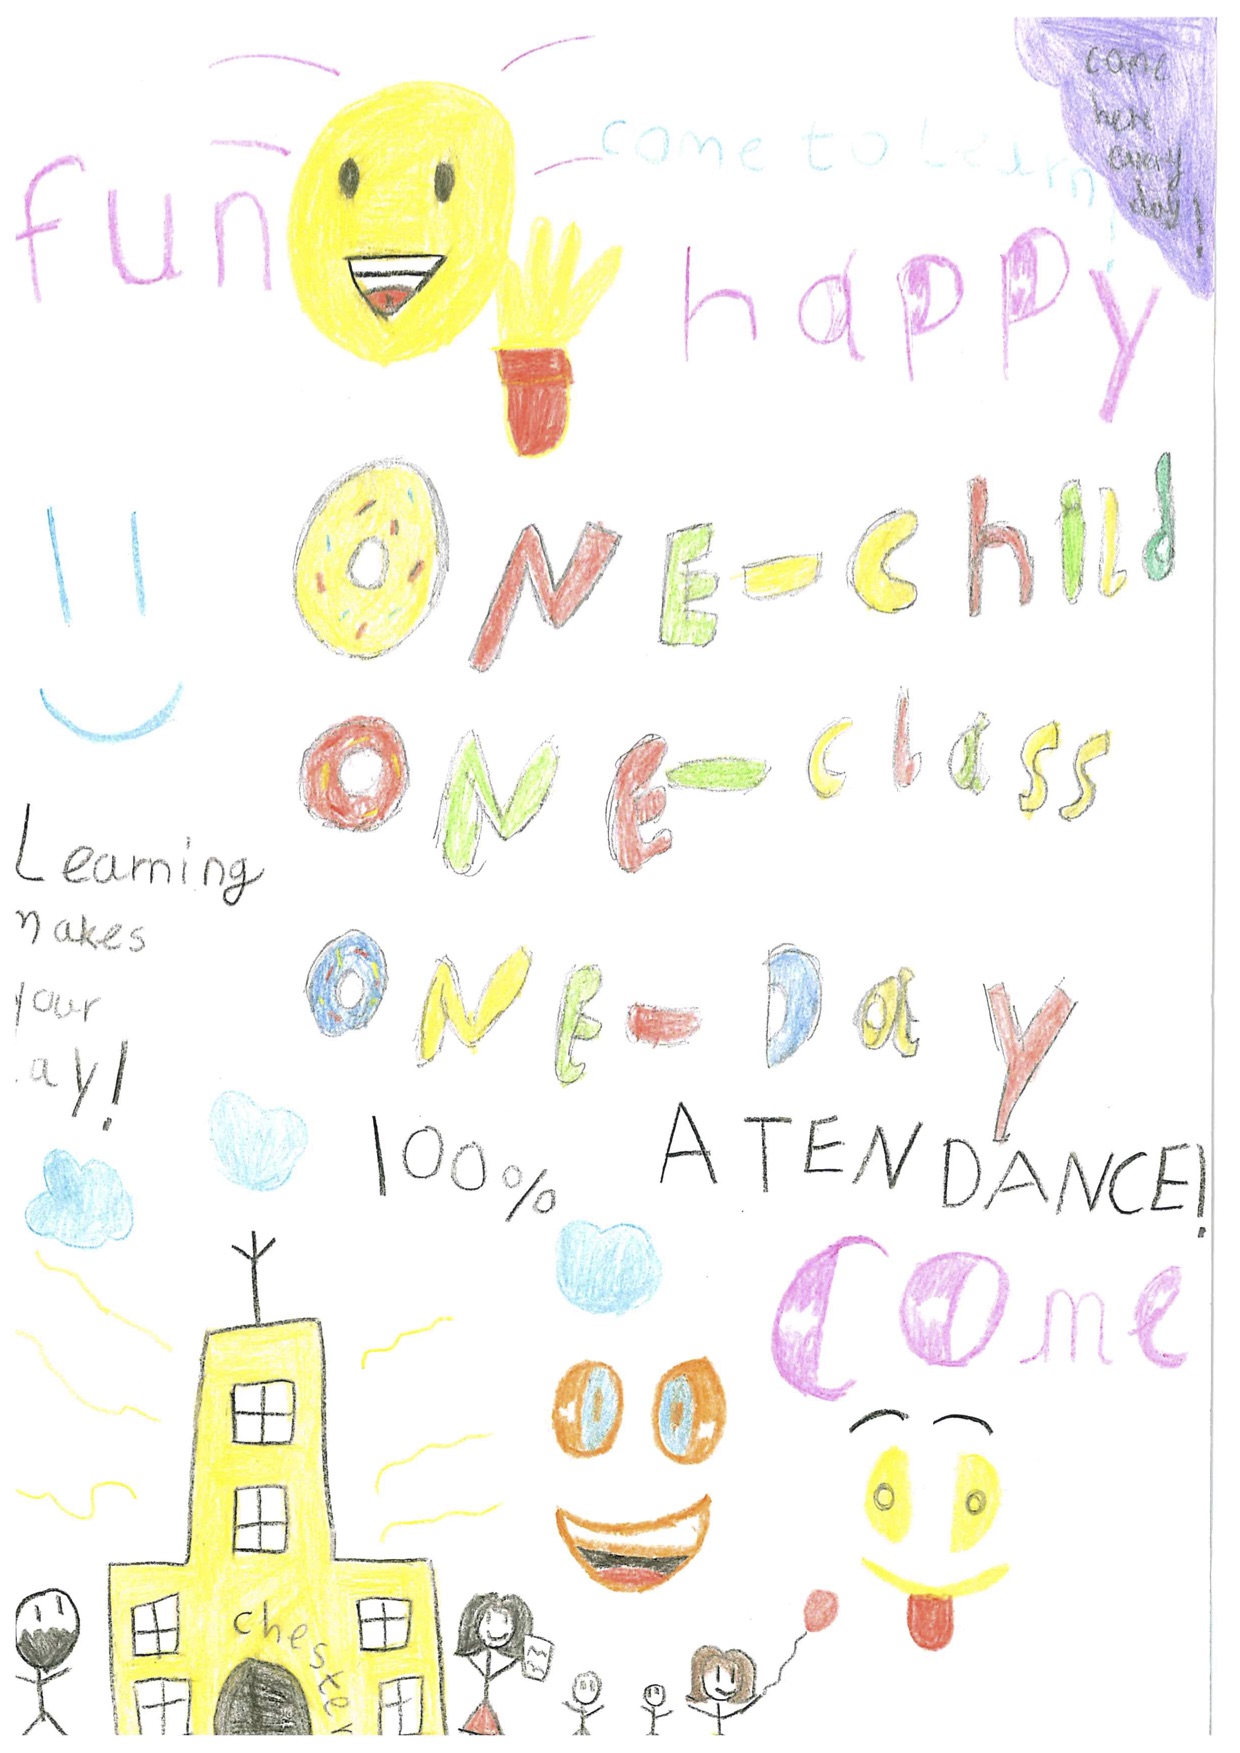 come
here
every
day!
come to Learn!
fun
happy
ONE-child
ONE-class
Learning
makes
your
ay!
ONE-Day
100% ATENDANCE!
come
chester